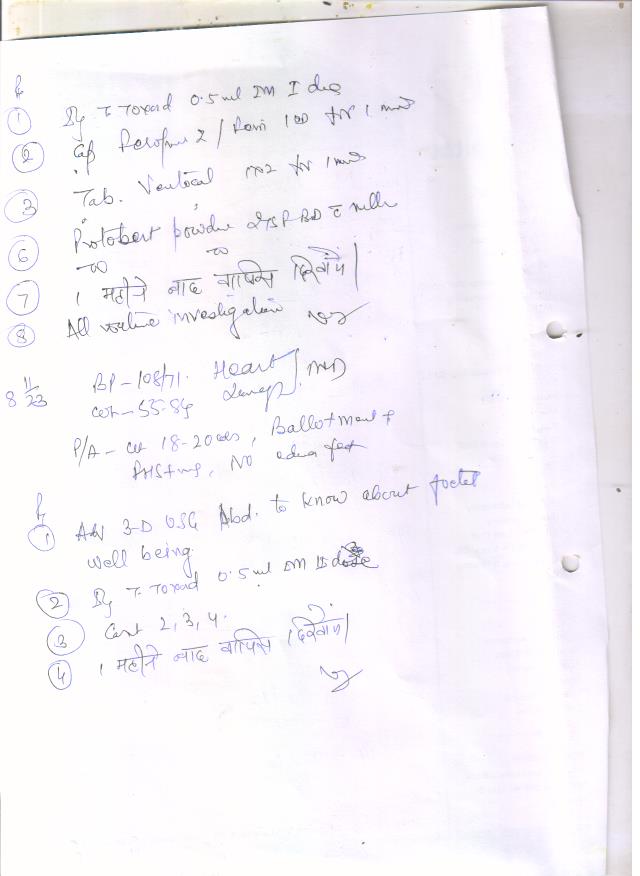 ①  Inj T. Toxoid 0.5 ml IM I dose
② Cap 2 / 100 for 1
③ Tab. for 1
⑥ powder 2TSP BD c milk
⑦ 1 महीने बाद वापिस दिखायें।
⑧ All routine investigation
8 11/23 BP - 108/71. Heart
wt - 55.8 kg Lungs NAD
P/A - ut 18-20 wks, Ballotment +
FHS + , No edema feet
① Adv 3-D USG Abd. to know about foetal
well being.
② Inj T. Toxoid 0.5 ml IM II dose
③ Cont 2, 3, 4.
④ 1 महीने बाद वापिस दिखायें।